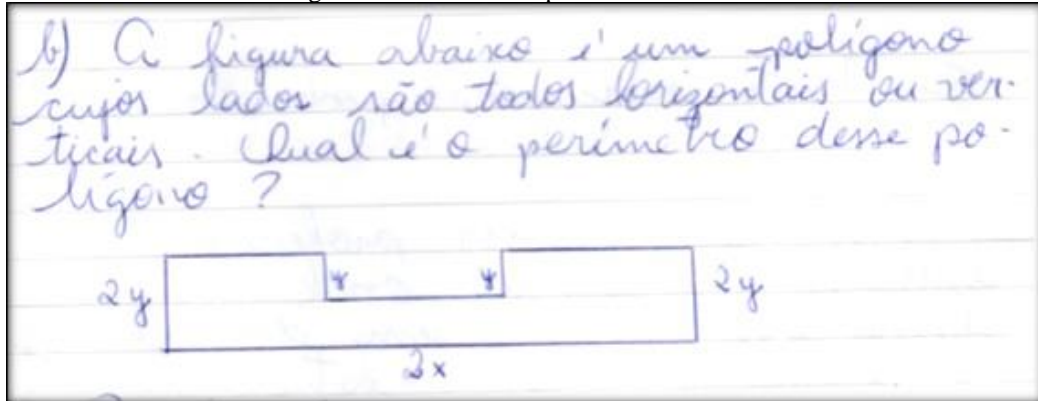 b) A figura abaixo é um polígono
cujos lados são todos horizontais ou ver-
ticais. Qual é o perímetro desse po-
lígono?
2y y y 2y
3x